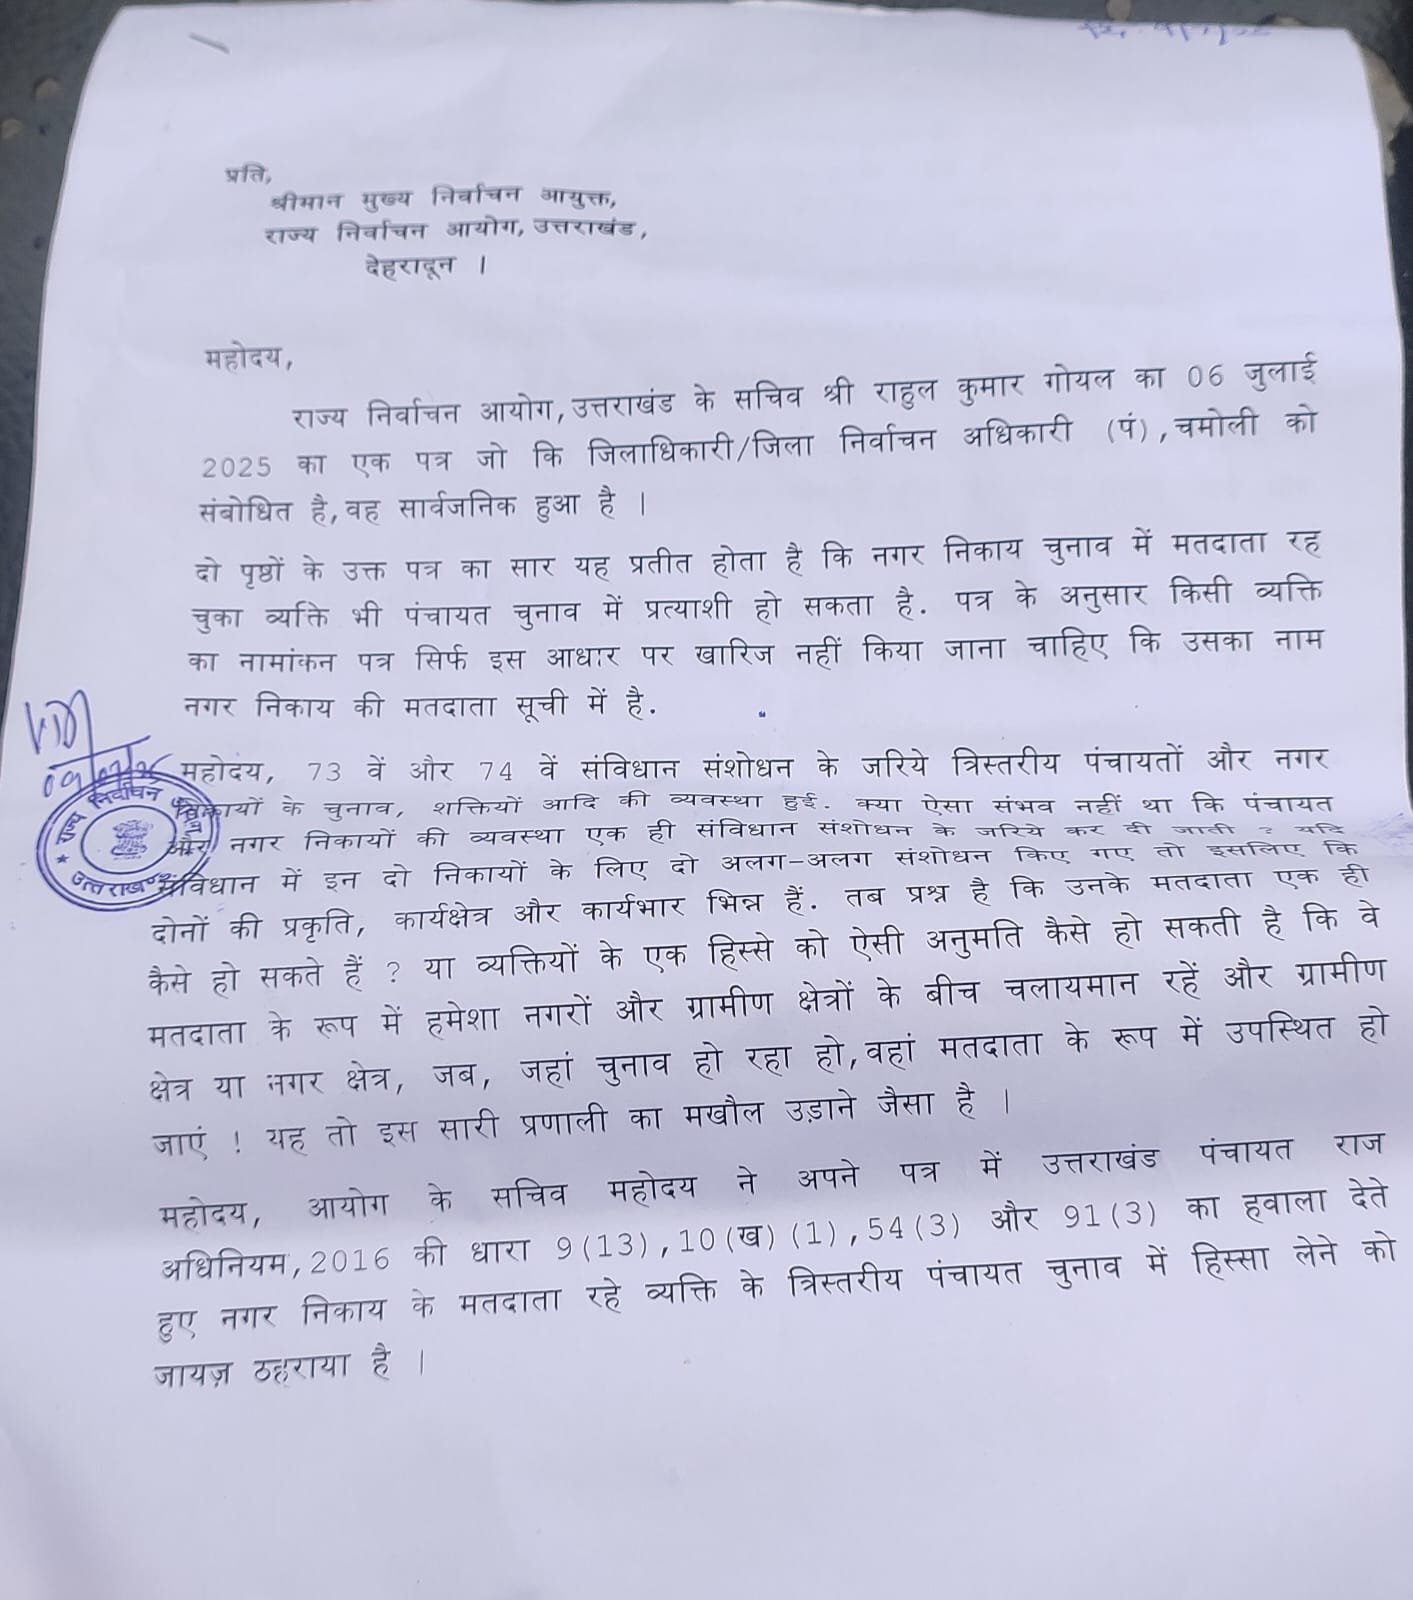 प्रति,
श्रीमान मुख्य निर्वाचन आयुक्त,
राज्य निर्वाचन आयोग, उत्तराखंड,
देहरादून ।
महोदय,
राज्य निर्वाचन आयोग, उत्तराखंड के सचिव श्री राहुल कुमार गोयल का 06 जुलाई
2025 का एक पत्र जो कि जिलाधिकारी/जिला निर्वाचन अधिकारी (पं), चमोली को
संबोधित है, वह सार्वजनिक हुआ है ।
दो पृष्ठों के उक्त पत्र का सार यह प्रतीत होता है कि नगर निकाय चुनाव में मतदाता रह
चुका व्यक्ति भी पंचायत चुनाव में प्रत्याशी हो सकता है. पत्र के अनुसार किसी व्यक्ति
का नामांकन पत्र सिर्फ इस आधार पर खारिज नहीं किया जाना चाहिए कि उसका नाम
नगर निकाय की मतदाता सूची में है.
महोदय, 73 वें और 74 वें संविधान संशोधन के जरिये त्रिस्तरीय पंचायतों और नगर
निकायों के चुनाव, शक्तियों आदि की व्यवस्था हुई. क्या ऐसा संभव नहीं था कि पंचायत
और नगर निकायों की व्यवस्था एक ही संविधान संशोधन के जरिये कर दी जाती ? यदि
संविधान में इन दो निकायों के लिए दो अलग-अलग संशोधन किए गए तो इसलिए कि
दोनों की प्रकृति, कार्यक्षेत्र और कार्यभार भिन्न हैं. तब प्रश्न है कि उनके मतदाता एक ही
कैसे हो सकते हैं ? या व्यक्तियों के एक हिस्से को ऐसी अनुमति कैसे हो सकती है कि वे
मतदाता के रूप में हमेशा नगरों और ग्रामीण क्षेत्रों के बीच चलायमान रहें और ग्रामीण
क्षेत्र या नगर क्षेत्र, जब, जहां चुनाव हो रहा हो, वहां मतदाता के रूप में उपस्थित हो
जाएं ! यह तो इस सारी प्रणाली का मखौल उड़ाने जैसा है ।
महोदय, आयोग के सचिव महोदय ने अपने पत्र में उत्तराखंड पंचायत राज
अधिनियम, 2016 की धारा 9(13), 10(ख) (1), 54(3) और 91(3) का हवाला देते
हुए नगर निकाय के मतदाता रहे व्यक्ति के त्रिस्तरीय पंचायत चुनाव में हिस्सा लेने को
जायज़ ठहराया है ।
राज्य निर्वाचन
उत्तराखण्ड